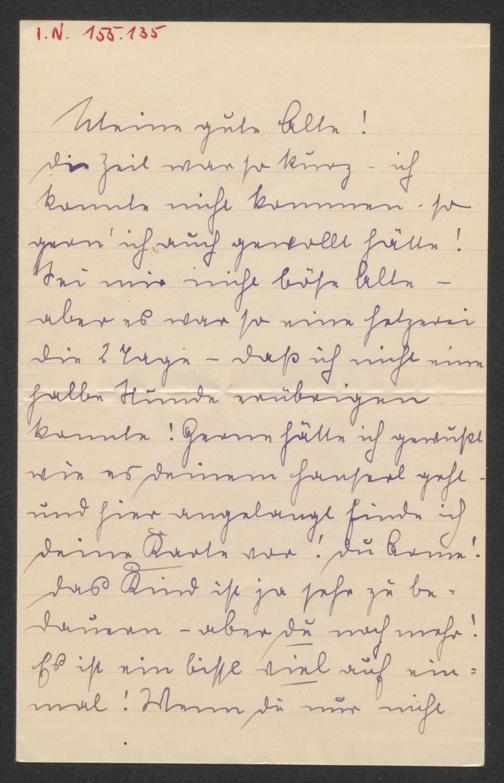 I.N. 155.135
Meine gute Alte!
die Zeit war so kurz - ich
konnte nicht kommen - so
gern' ich auch gewollt hätte!
Sei mir nicht böse Alte -
aber es war so eine hetzerei
die 2 Tage - daß ich nicht eine
halbe Stunde erübrigen
konnte! Gerne hätte ich gewußt
wie es deinem hanserl geht -
und hier angelangt finde ich
deine Karte vor! du Arme!
das Kind ist ja sehr zu be=
dauern - aber du noch mehr!
Es ist ein bissl viel auf ein=
mal! Wenn du nur nicht